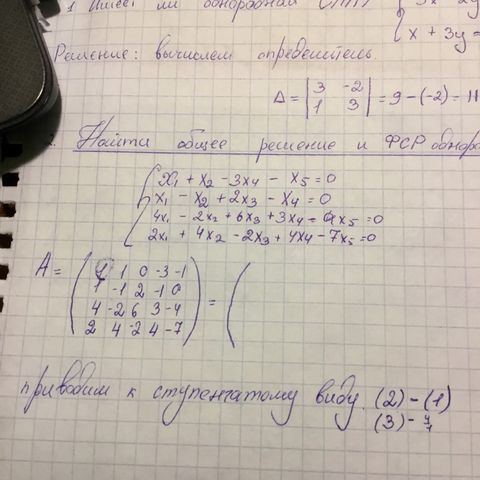 1 Имеет ли однородная
x + 3y =
Решение: вычислем определитель
Δ = | 3 -2 | = 9 - (-2) = 11
| 1 3 |
Найти общее решение и ФСР однор
x₁ + x₂ - 3x₄ - x₅ = 0
x₁ - x₂ + 2x₃ - x₄ = 0
4x₁ - 2x₂ + 6x₃ + 3x₄ - 4x₅ = 0
2x₁ + 4x₂ - 2x₃ + 4x₄ - 7x₅ = 0
A = ( 1 1 0 -3 -1 ) = (
1 -1 2 -1 0
4 -2 6 3 -4
2 4 -2 4 -7
приводим к ступенчатому виду. (2) - (1)
(3) -